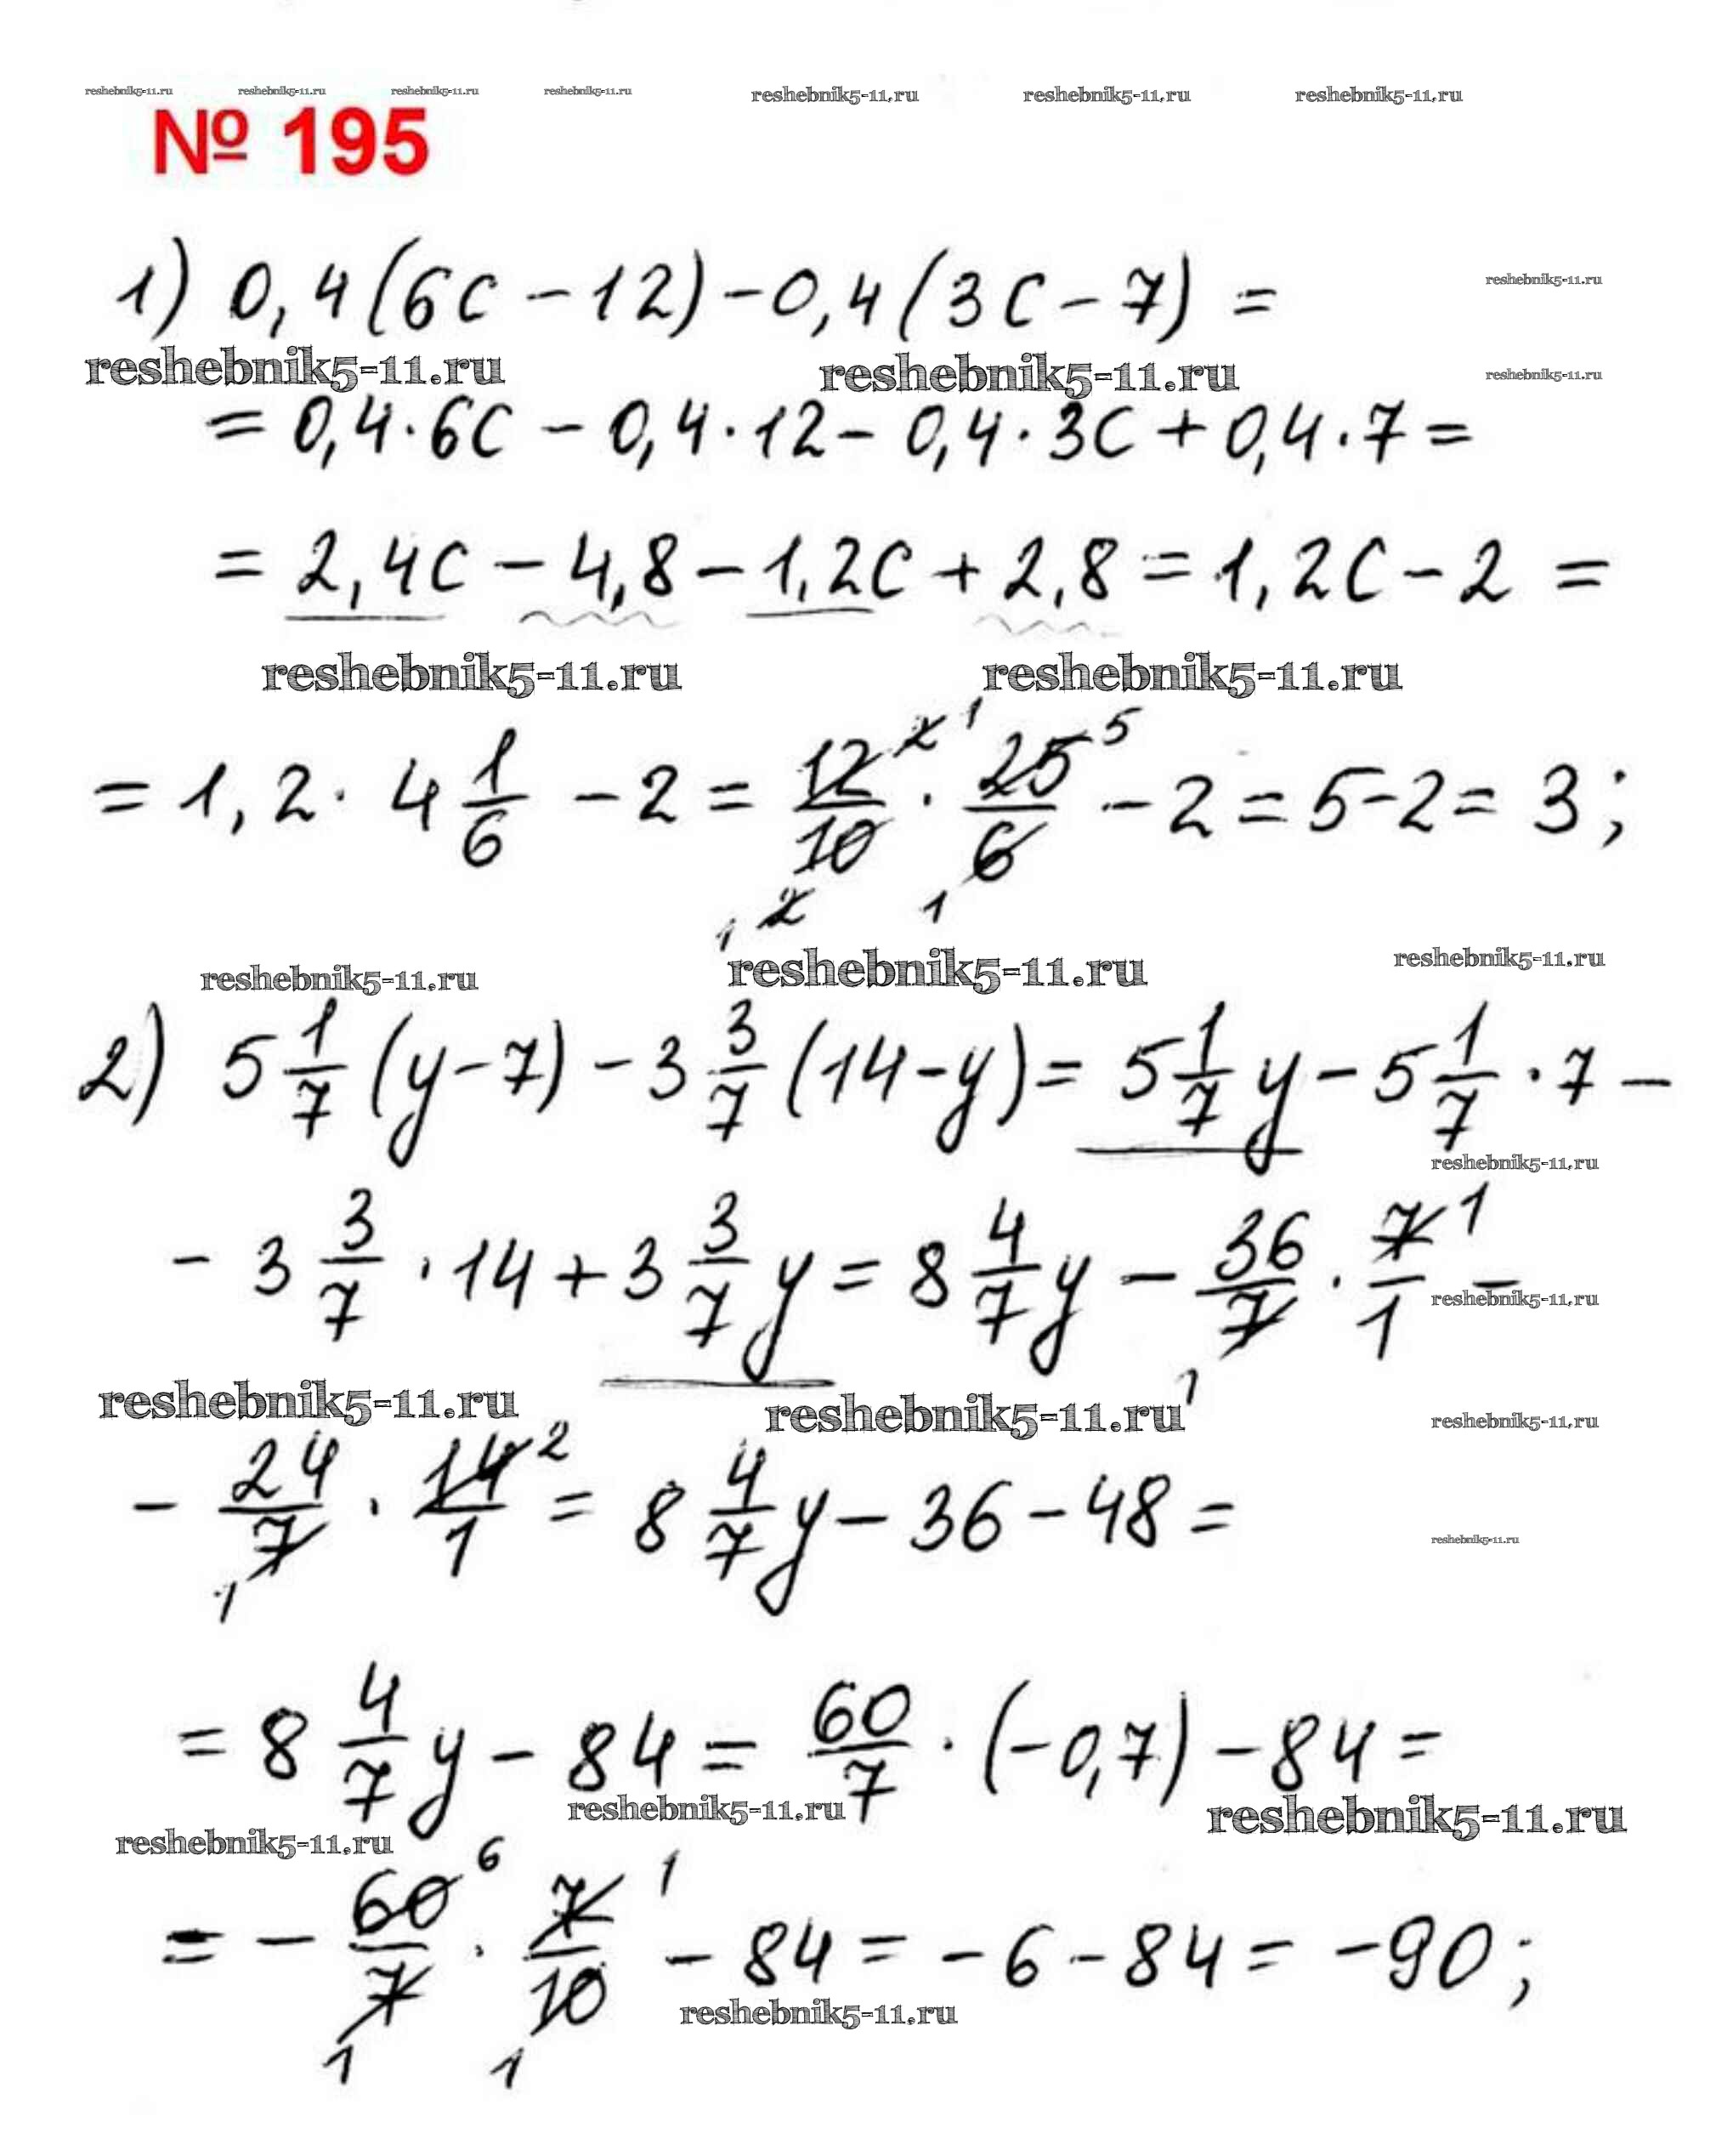 reshebnik5-11.ru reshebnik5-11.ru reshebnik5-11.ru reshebnik5-11.ru reshebnik5-11.ru reshebnik5-11.ru reshebnik5-11.ru
№ 195
1) 0,4(6c - 12) - 0,4(3c - 7) =
reshebnik5-11.ru
reshebnik5-11.ru reshebnik5-11.ru reshebnik5-11.ru
= 0,4 · 6c - 0,4 · 12 - 0,4 · 3c + 0,4 · 7 =
= 2,4c - 4,8 - 1,2c + 2,8 = 1,2c - 2 =
reshebnik5-11.ru reshebnik5-11.ru
= 1,2 · 4 1/6 - 2 = 12/10 · 25/6 - 2 = 5 - 2 = 3;
2 1 5
1 2 1
reshebnik5-11.ru reshebnik5-11.ru reshebnik5-11.ru
2) 5 1/7 (y - 7) - 3 3/7 (14 - y) = 5 1/7 y - 5 1/7 · 7 -
reshebnik5-11.ru
- 3 3/7 · 14 + 3 3/7 y = 8 4/7 y - 36/7 · 7/1 -
1
1
reshebnik5-11.ru
reshebnik5-11.ru reshebnik5-11.ru reshebnik5-11.ru
- 24/7 · 14/1 = 8 4/7 y - 36 - 48 =
2
1
reshebnik5-11.ru
= 8 4/7 y - 84 = 60/7 · (-0,7) - 84 =
reshebnik5-11.ru reshebnik5-11.ru reshebnik5-11.ru
= - 60/7 · 7/10 - 84 = -6 - 84 = -90;
6 1
1 1
reshebnik5-11.ru